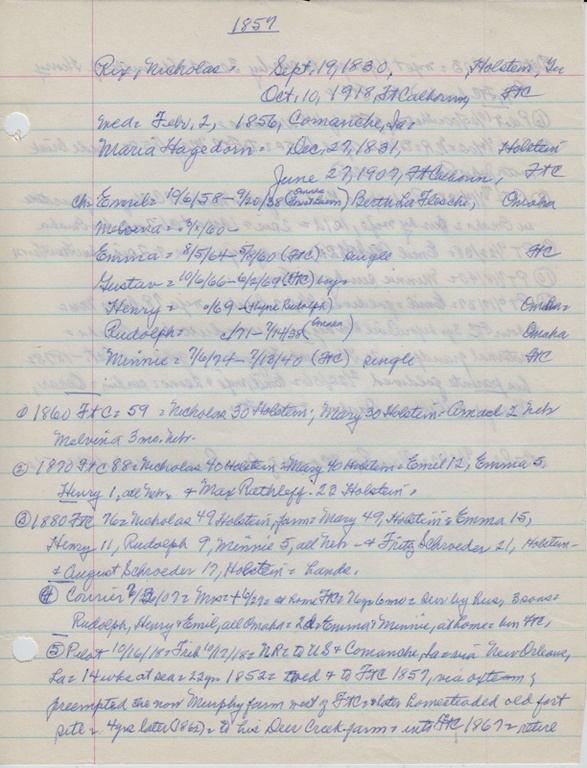 1857
Rix, Nicholas = Sept, 19, 1830, Holstein, Ger
Oct, 10, 1918, Ft Calhoun, FtC
Med = Febr, 2, 1856, Comanche, Ia =
Maria Hagedorn = Dec, 27, 1831, Holstein
June 27, 1907, Ft Calhoun, FtC
Ch = Emil = 10/6/58 - 9/20/38 ( ) Berth La Flesche, Omaha
Melvina = 3/1/60 -
Emma = 8/5/64 - /60 (FtC) = single FtC
Gustav = 10/6/66 - 6/2/69 (FtC)
Henry = /69 - (Hyne Rudolph) Omaha
Rudolph = c/71 - 7/14/38 (Omaha) Omaha
Minnie = 7/6/74 - 7/13/40 (FtC) single FtC
① 1860 FtC = 59 = Nicholas 30 Holstein; Mary 30 Holstein = 2 Nebr
Melvina 3 mo. Nebr.
② 1870 FtC 88 = Nicholas 40 Holstein = Mary 40 Holstein = Emil 12, Emma 5,
Henry 1, all Nebr. & Max Rathleff. 23 Holstein.
③ 1880 FtC 76 = Nicholas 49 Holstein, farm = Mary 49, Holstein = Emma 15,
Henry 11, Rudolph 9, Minnie 5, all Nebr - & Fritz Schroeder 21, Holstein -
& August Schroeder 17, Holstein = hands.
④ Courier /07 = Mrs = + 6/27 = at home FtC = 76 yr 6 mo = Surv by Hus, 3 sons =
Rudolph, Henry & Emil, all Omaha = 2 d = Emma & Minnie, at home = bur FtC,
⑤ Pilot 10/16/18 = Fred 10/17/18 = NR = to US & Comanche, Ia = via New Orleans,
La = 14 wks at sea = 22 yrs 1852 = wed & to FtC 1857, via oxteam =
preempted the now Murphy farm west of FtC = later homesteaded old fort
site = 4 yrs later (1862) = to his Deer Creek farm = into FtC 1867 = retire